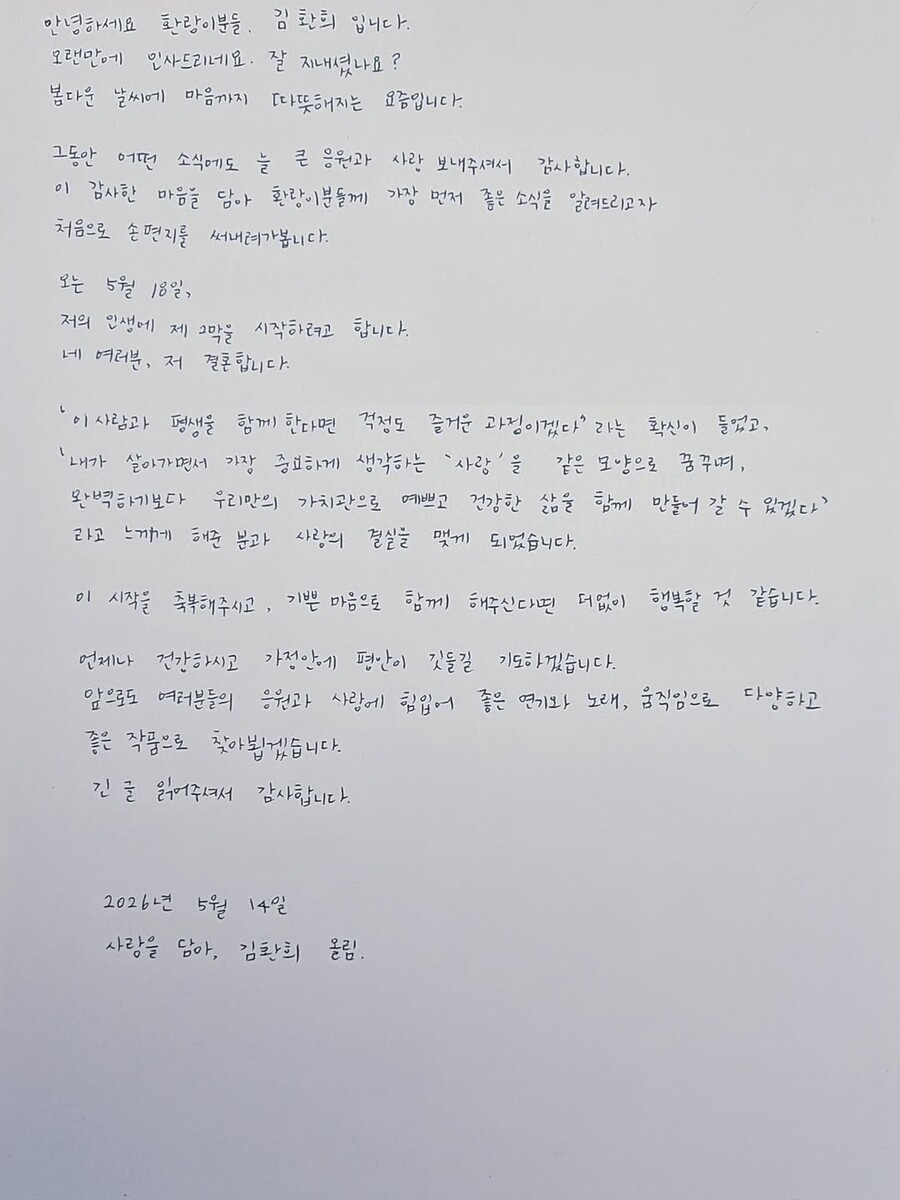 안녕하세요 환랑이분들. 김환희 입니다.
오랜만에 인사드리네요. 잘 지내셨나요?
봄다운 날씨에 마음까지 따뜻해지는 요즘입니다.
그동안 어떤 소식에도 늘 큰 응원과 사랑 보내주셔서 감사합니다.
이 감사한 마음을 담아 환랑이분들께 가장 먼저 좋은 소식을 알려드리고자
처음으로 손편지를 써내려가봅니다.
오는 5월 18일,
저의 인생에 제 2막을 시작하려고 합니다.
네 여러분, 저 결혼합니다.
'이 사람과 평생을 함께 한다면 걱정도 즐거운 과정이겠다' 라는 확신이 들었고,
'내가 살아가면서 가장 중요하게 생각하는 '사랑'을 같은 모양으로 꿈꾸며,
완벽하기보다 우리만의 가치관으로 예쁘고 건강한 삶을 함께 만들어 갈 수 있겠다'
라고 느끼게 해준 분과 사랑의 결실을 맺게 되었습니다.
이 시작을 축복해주시고, 기쁜 마음으로 함께 해주신다면 더없이 행복할 것 같습니다.
언제나 건강하시고 가정안에 평안이 깃들길 기도하겠습니다.
앞으로도 여러분들의 응원과 사랑에 힘입어 좋은 연기와 노래, 움직임으로 다양하고
좋은 작품으로 찾아뵙겠습니다.
긴 글 읽어주셔서 감사합니다.
2026년 5월 14일
사랑을 담아, 김환희 올림.